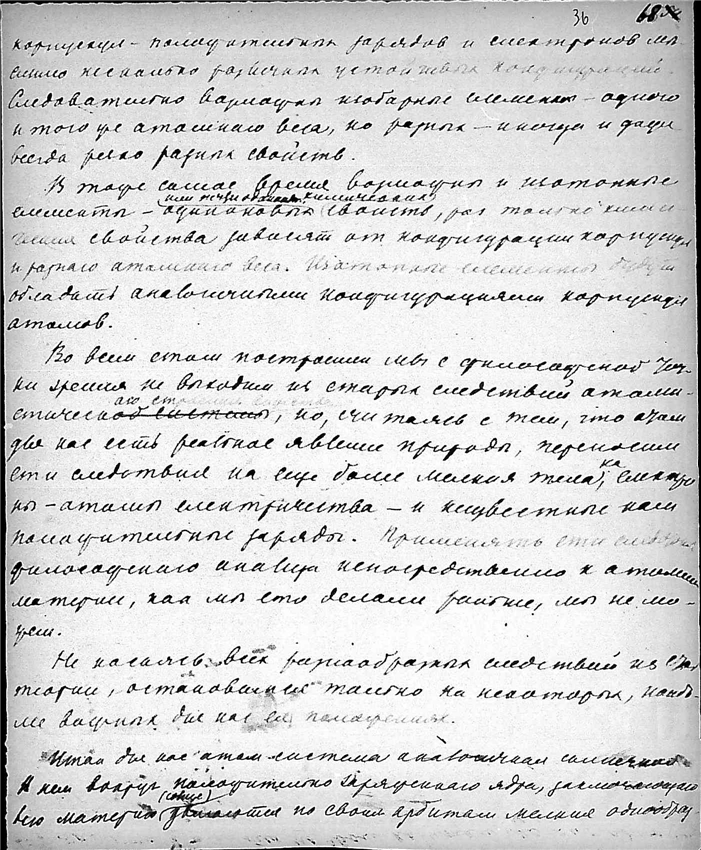 36 68
корпускул – положительных зарядов и електронов мы
слимо несколько различных устойчивых конфигураций.
Следовательно возможны изобарные елементы – одного
и того же атомного веса, но разных – иногда и даже
всегда резко разных свойств.
В тоже самое время возможны и изотопные
или тождественных химических
елементы – одинаковых свойств, раз только хими
ческия свойства зависят от конфигурации корпускул
и разного атомного веса. Изотопные елементы будут
обладать аналогичными конфигурациями корпускул
атомов.
Во всем етом построении мы с философской точ-
ки зрения не выходим из старых следствий атоми-
аго строения вещества
стической системы, но, считаясь с тем, что атом
для нас есть реальное явление природы, переносим
ети следствия на еще более мелкия тела, на електро
ны – атомы електричества – и неизвестные нам
положительные заряды. Применять ети следствия
философского анализа непосредственно к атомам
материи, как мы ето делали раньше, мы не мо-
жем.
Не касаясь всех разнообразных следствий из етой
теории, остановимся только на некоторых, наибо-
лее важных для нас ея положениях.
Итак для нас атом система аналогичная солнечной
В нем вокруг положительно заряженного ядра, заключающего
(солнце)
всю материю двигаются по своим орбитам мелкия однообраз-